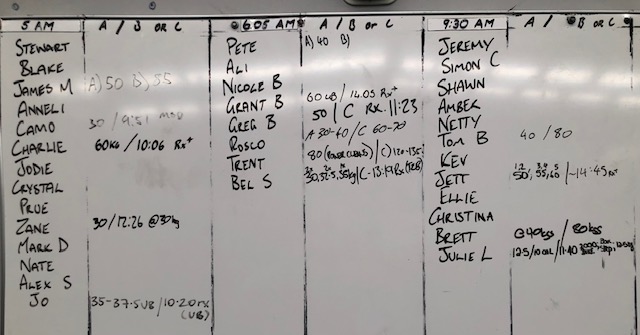 5 AM A / B OR C
STEWART
BLAKE
JAMES M A) 50 B) 55
ANNELI
CAMO 30 / 9:51
CHARLIE 60KG / 10:06 RX+
JODIE
CRYSTAL
PRUE
ZANE 30/12:26 @30kg
MARK D
NATE
ALEX S
JO 35-37.5UB / 10:20 RX
(UB)
6:05 AM A / B OR C
PETE A) 40 B)
ALI
NICOLE B
GRANT B 60 UB / 14:05 RX+
GREG B 50 / C RX-11:23
ROSCO A 30-40 / C 60-70
TRENT 80 (POWER CLEANS) / C) 120-135
BEL S
9:30 AM A / B OR C
JEREMY
SIMON C
SHAWN
AMBER
NETTY
TOM B 40 / 80
KEV
JETT 50, 55, 60 / ~14:45 RX+
ELLIE
CHRISTINA
BRETT @40kgs / 80kgs
JULIE L